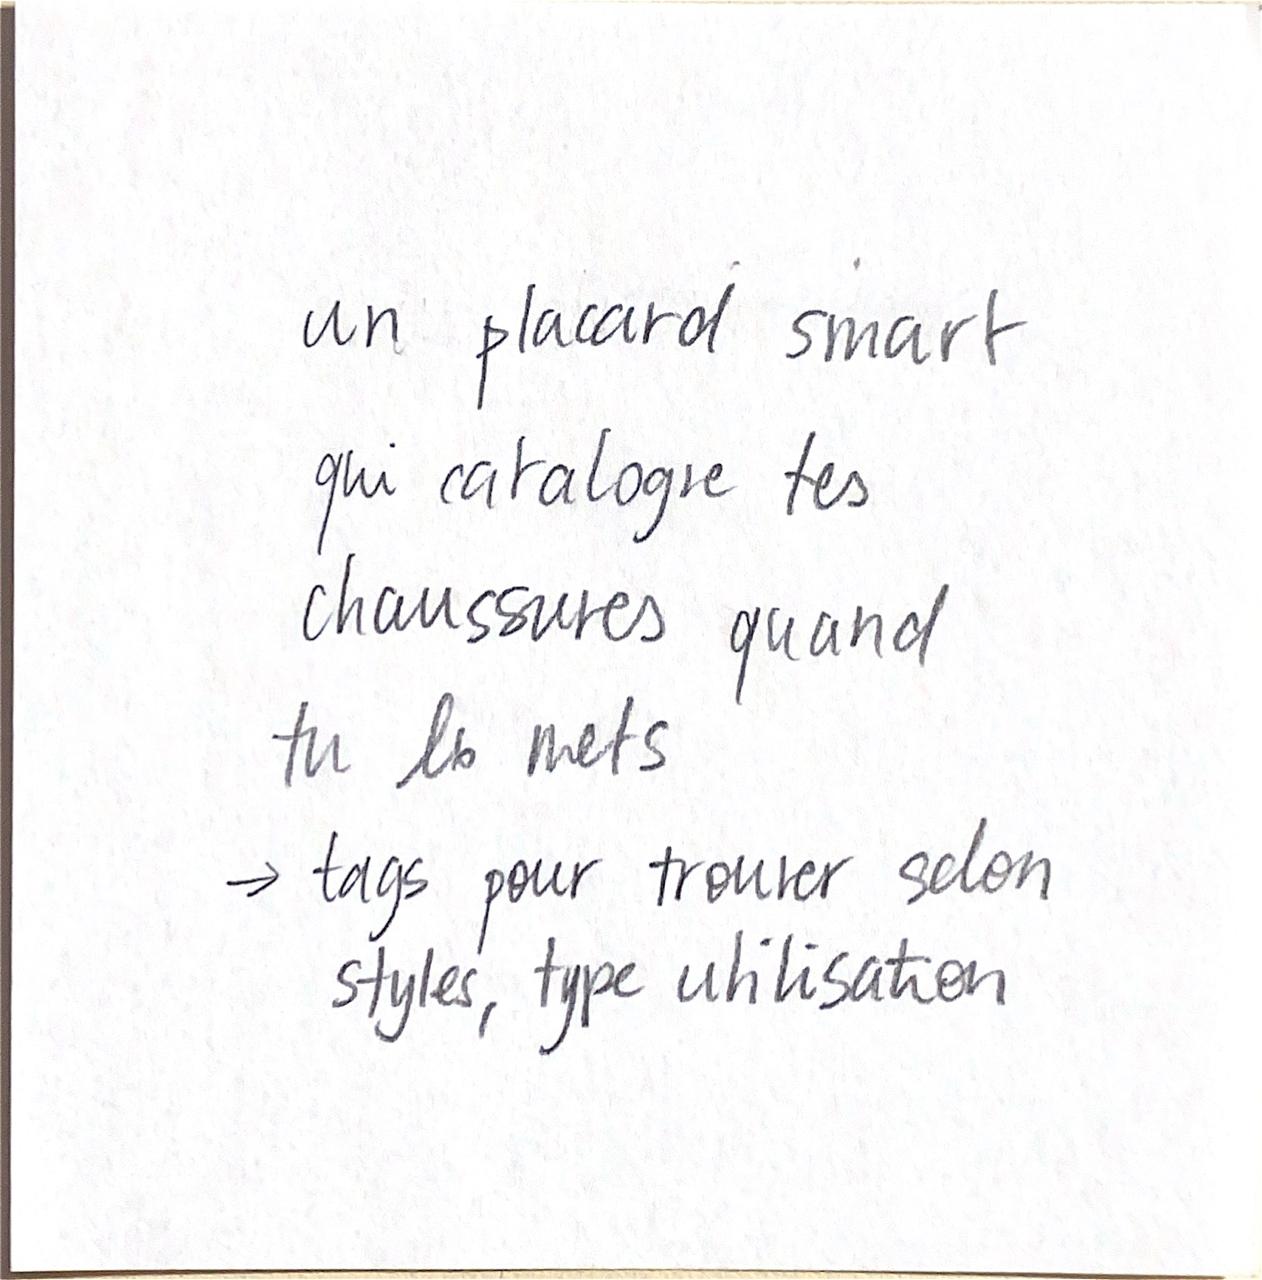 un placard smart
qui catalogue tes
chaussures quand
tu les mets
→ tags pour trouver selon
styles, type utilisation